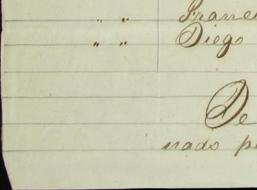 " " Franci
" " Diego
De
nado pr